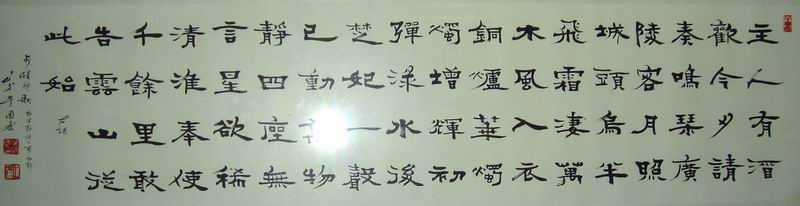 主人有酒
歡今夕請
奏鳴琴廣
陵客月照
城頭烏半
飛霜淒萬
木風入衣
銅爐華燭
燭增輝初
彈淥水後
楚妃一聲
已動物
靜四座無
言星欲稀
清淮奉使
千餘里敢
告雲山從
此始